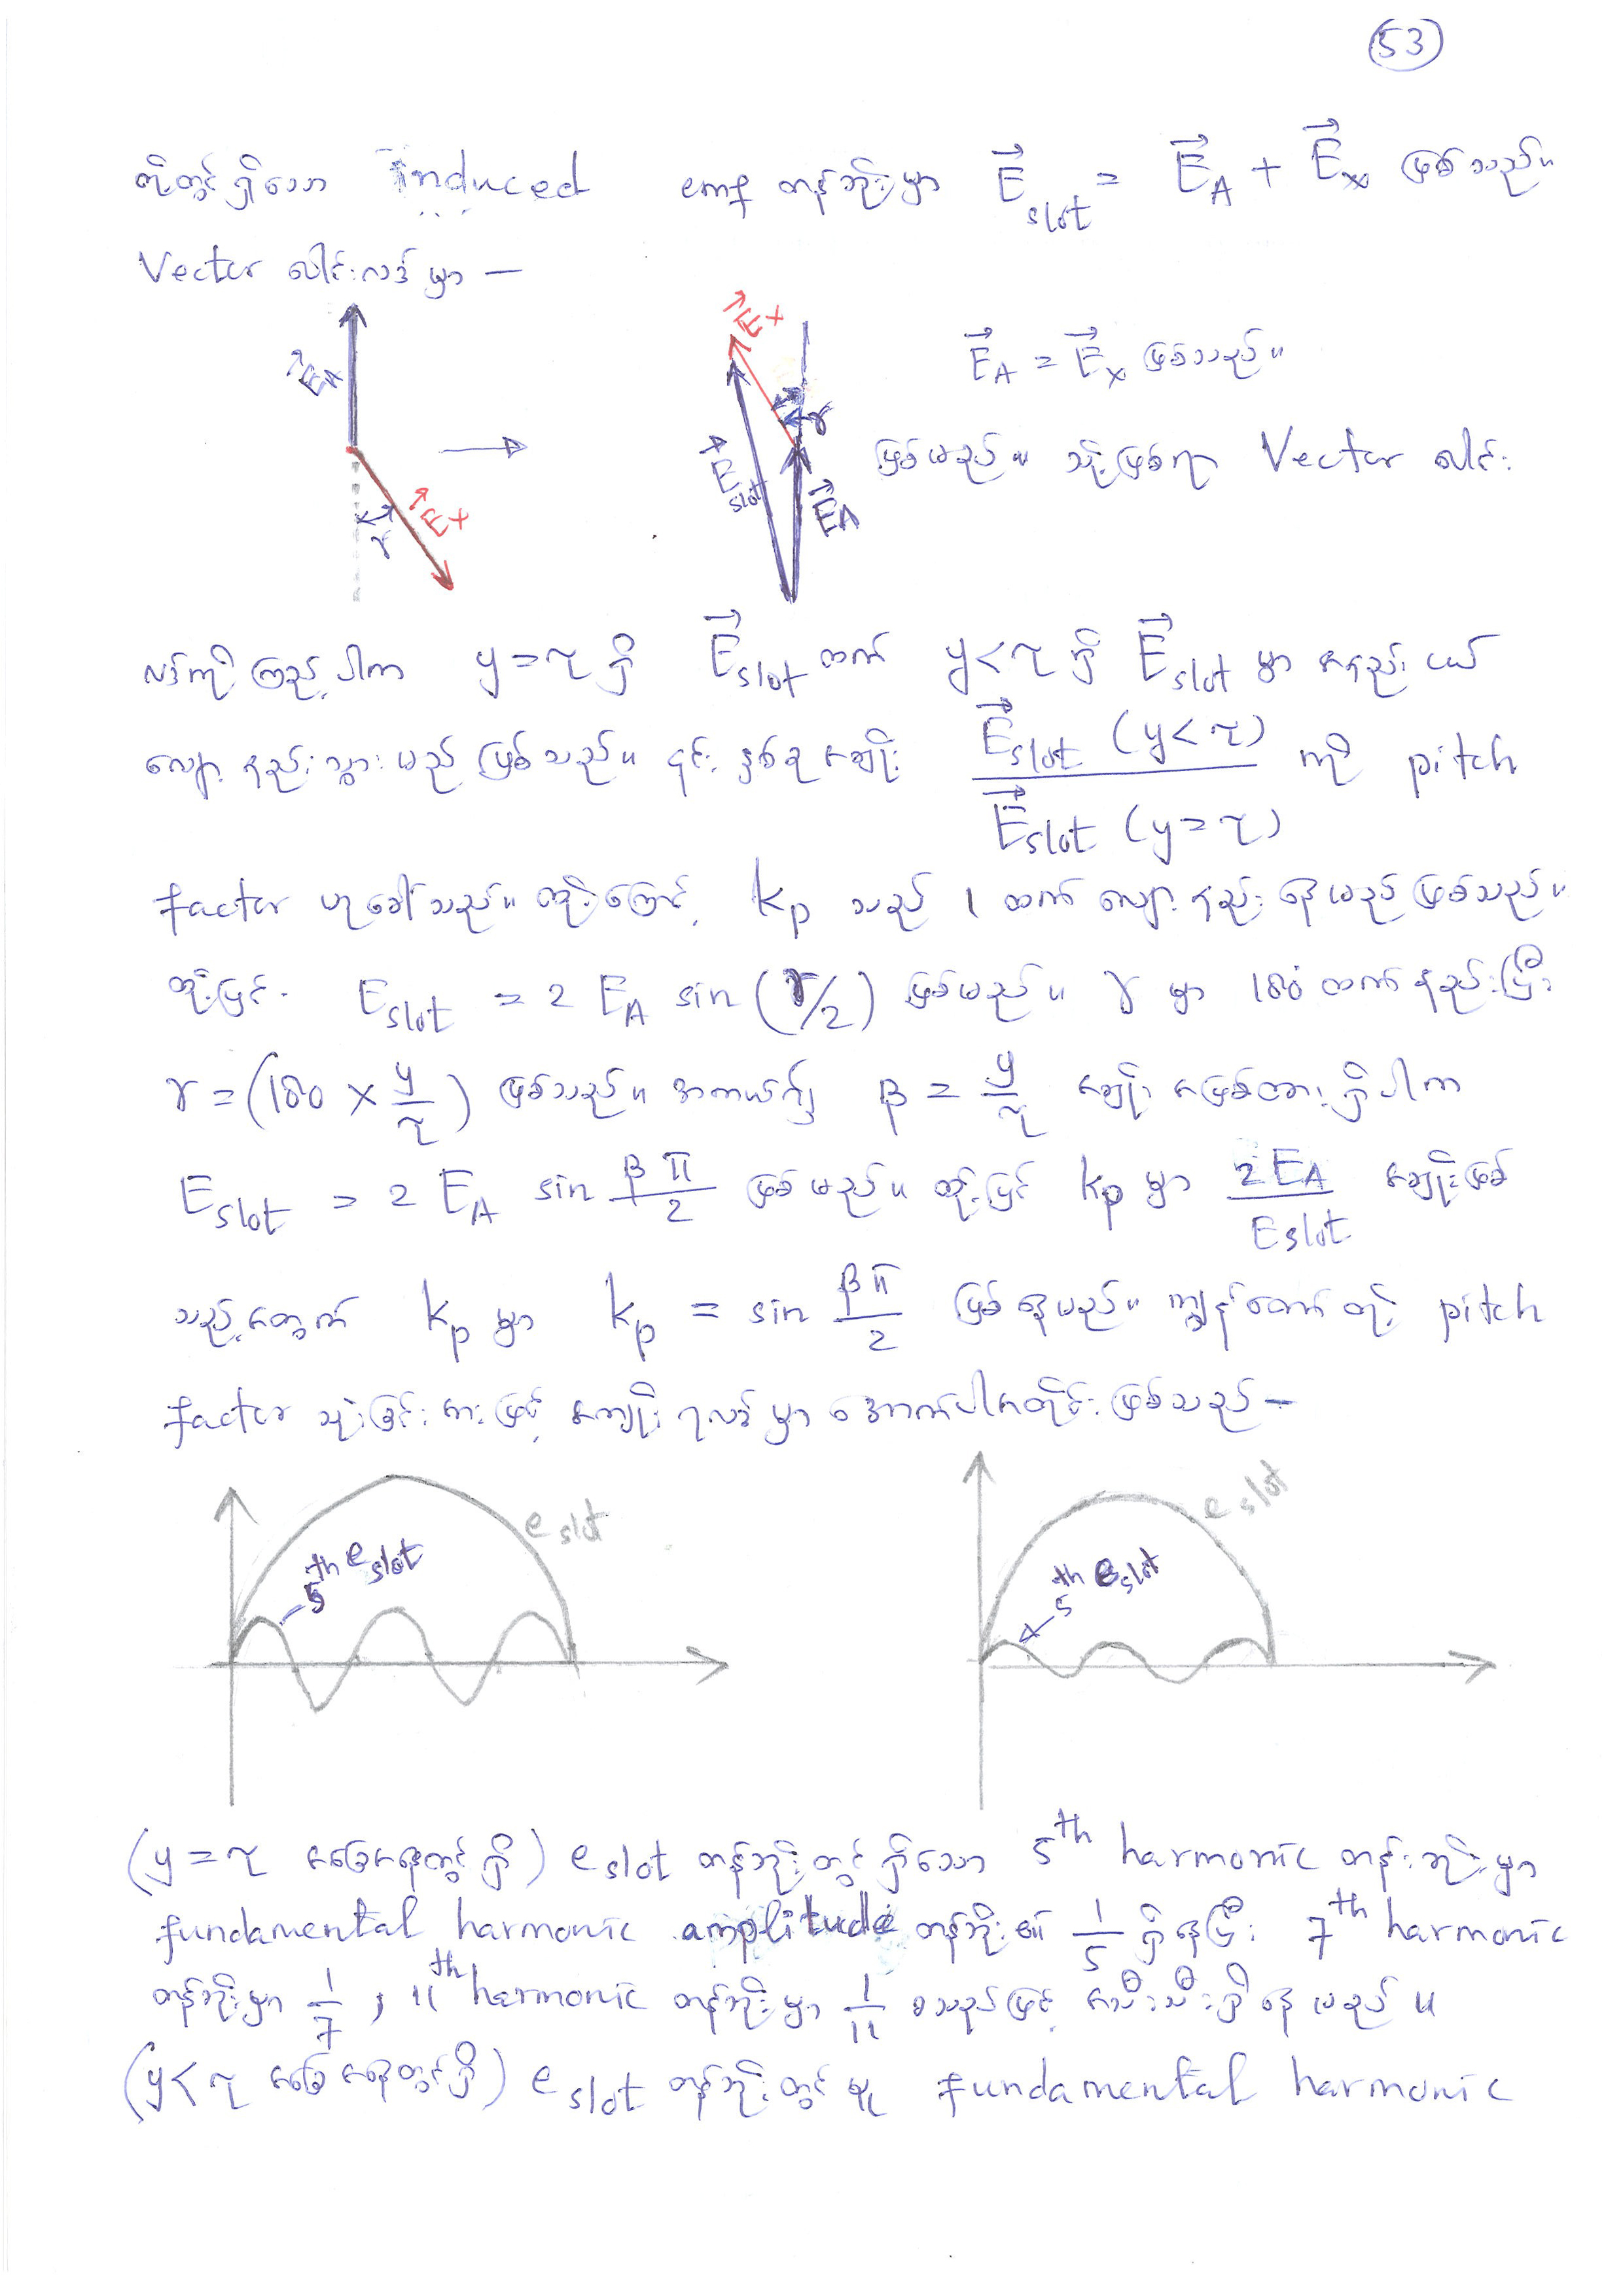 (53)
တို့တွင်ရှိသော induced emf တန်ဘိုးမှာ E⃗slot = E⃗A + E⃗x ဖြစ်သည်။
Vector ပေါင်းလဒ်မှာ —
E⃗A
E⃗x
γ
E⃗x
γ
E⃗slot
E⃗A
E⃗A = E⃗x ဖြစ်သည်။
ဖြစ်မည်။ သို့ဖြစ်ရာ Vector ပေါင်း
လဒ်ကို ကြည့်ပါက y = τ ရှိ E⃗slot ထက် y < τ ရှိ E⃗slot မှာ အနည်းငယ်
လျော့နည်းသွားမည် ဖြစ်သည်။ ၎င်းနှစ်ခုအချိုး E⃗slot (y < τ) / E⃗slot (y = τ) ကို pitch
factor ဟုခေါ်သည်။ ထို့ကြောင့် kp သည် 1 ထက် လျော့နည်းနေမည်ဖြစ်သည်။
ထို့ပြင် Eslot = 2 EA sin (γ/2) ဖြစ်မည်။ γ မှာ 180° ထက်နည်းပြီး
γ = (180 × y/τ) ဖြစ်သည်။ အကယ်၍ β = y/τ အချိုး အဖြစ်ထားရှိပါက
Eslot = 2 EA sin βπ/2 ဖြစ်မည်။ ထို့ပြင် kp မှာ 2EA/Eslot အချိုးဖြစ်
သည့်အတွက် kp မှာ kp = sin βπ/2 ဖြစ်နေမည်။ ကျွန်တော်တို့ pitch
factor သုံးခြင်းအားဖြင့် အကျိုးရလဒ်မှာ အောက်ပါအတိုင်းဖြစ်သည် —
eslot
5th eslot
eslot
5th eslot
(y = τ အခြေအနေတွင်ရှိ) eslot တန်ဘိုးတွင်ရှိသော 5th harmonic တန်းဘိုးမှာ
fundamental harmonic amplitude တန်ဘိုး၏ 1/5 ရှိနေပြီး 7th harmonic
တန်ဘိုးမှာ 1/7 , 11th harmonic တန်ဘိုးမှာ 1/11 စသည်ဖြင့် အသီးသီးရှိနေမည်။
(y < τ အခြေအနေတွင်ရှိ) eslot တန်ဘိုးတွင်မူ fundamental harmonic